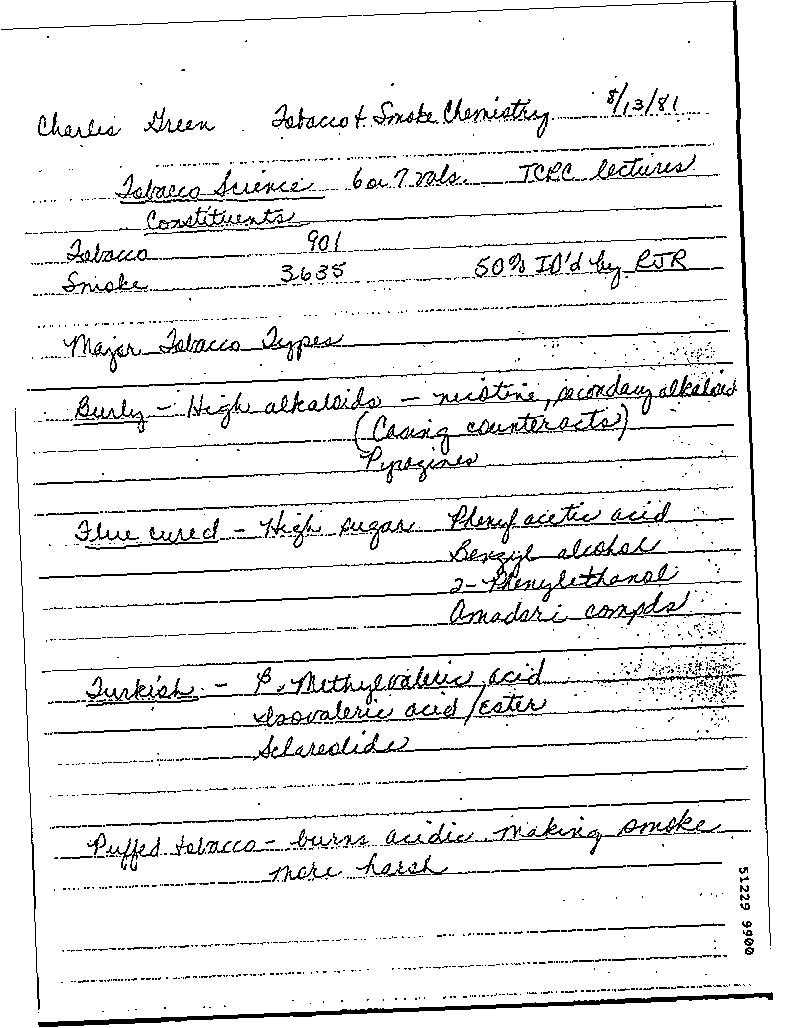 Charles Green Tobacco & Smoke Chemistry 8/13/81
Tobacco Science 6 or 7 vols. TCRC lectures
Constituents
Tobacco 901
Smoke 3635 50% ID'd by RJR
Major Tobacco Types
Burley - High alkaloids - nicotine, secondary alkaloid
(Casing counteracts)
Pyrazines
Flue cured - High sugar Phenylacetic acid
Benzyl alcohol
2-Phenylethanol
Amadori compds
Turkish - β-Methylvaleric acid
Isovaleric acid/ester
Sclareolide
Puffed tobacco - burns acidic making smoke
more harsh
51229 9900